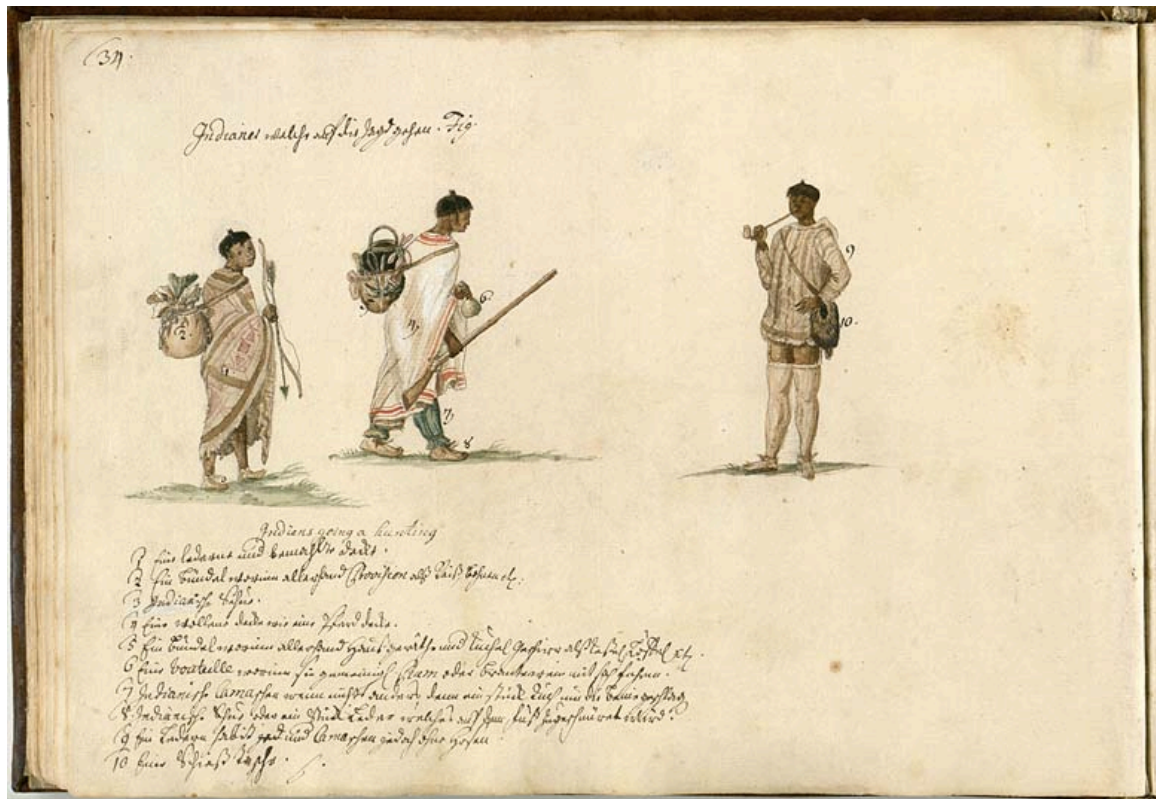 34.
Indianer welche auf die Jagd gehen. Fig.
2
1
5
4
6
7
8
9
10.
Indians going a hunting
1 Eine lederne und bemahlte decke.
2 Ein bündel worinn allerhand Provision alß Reiß, bohnen etc.
3 Indianische Schue.
4 Eine wollene decke wie eine Pferd decke.
5 Ein bündel worinn allerhand Hauß geräthe und Kuchel geschirr alß Kessel Löffel etc.
6 Eine bouteille worinn sie gemeinigl Rum oder brantewein mit sich fuhren.
7 Indianische Camaschen wenn nichts anders denn ein stück tuch um die beine
8 Indianische Schue oder ein stück Leder welches auf dem fuß zugeschnüret wird.
9 Ein Ledern habit und Camaschen jedoch ohne Hosen
10 Eine Schieß tasche.